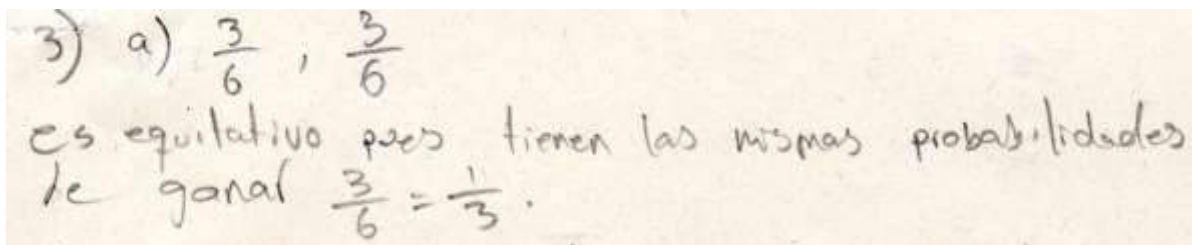 3) a) 3/6 , 3/6
es equilativo pues tienen las mismas probabilidades
de ganar 3/6 = 1/3.